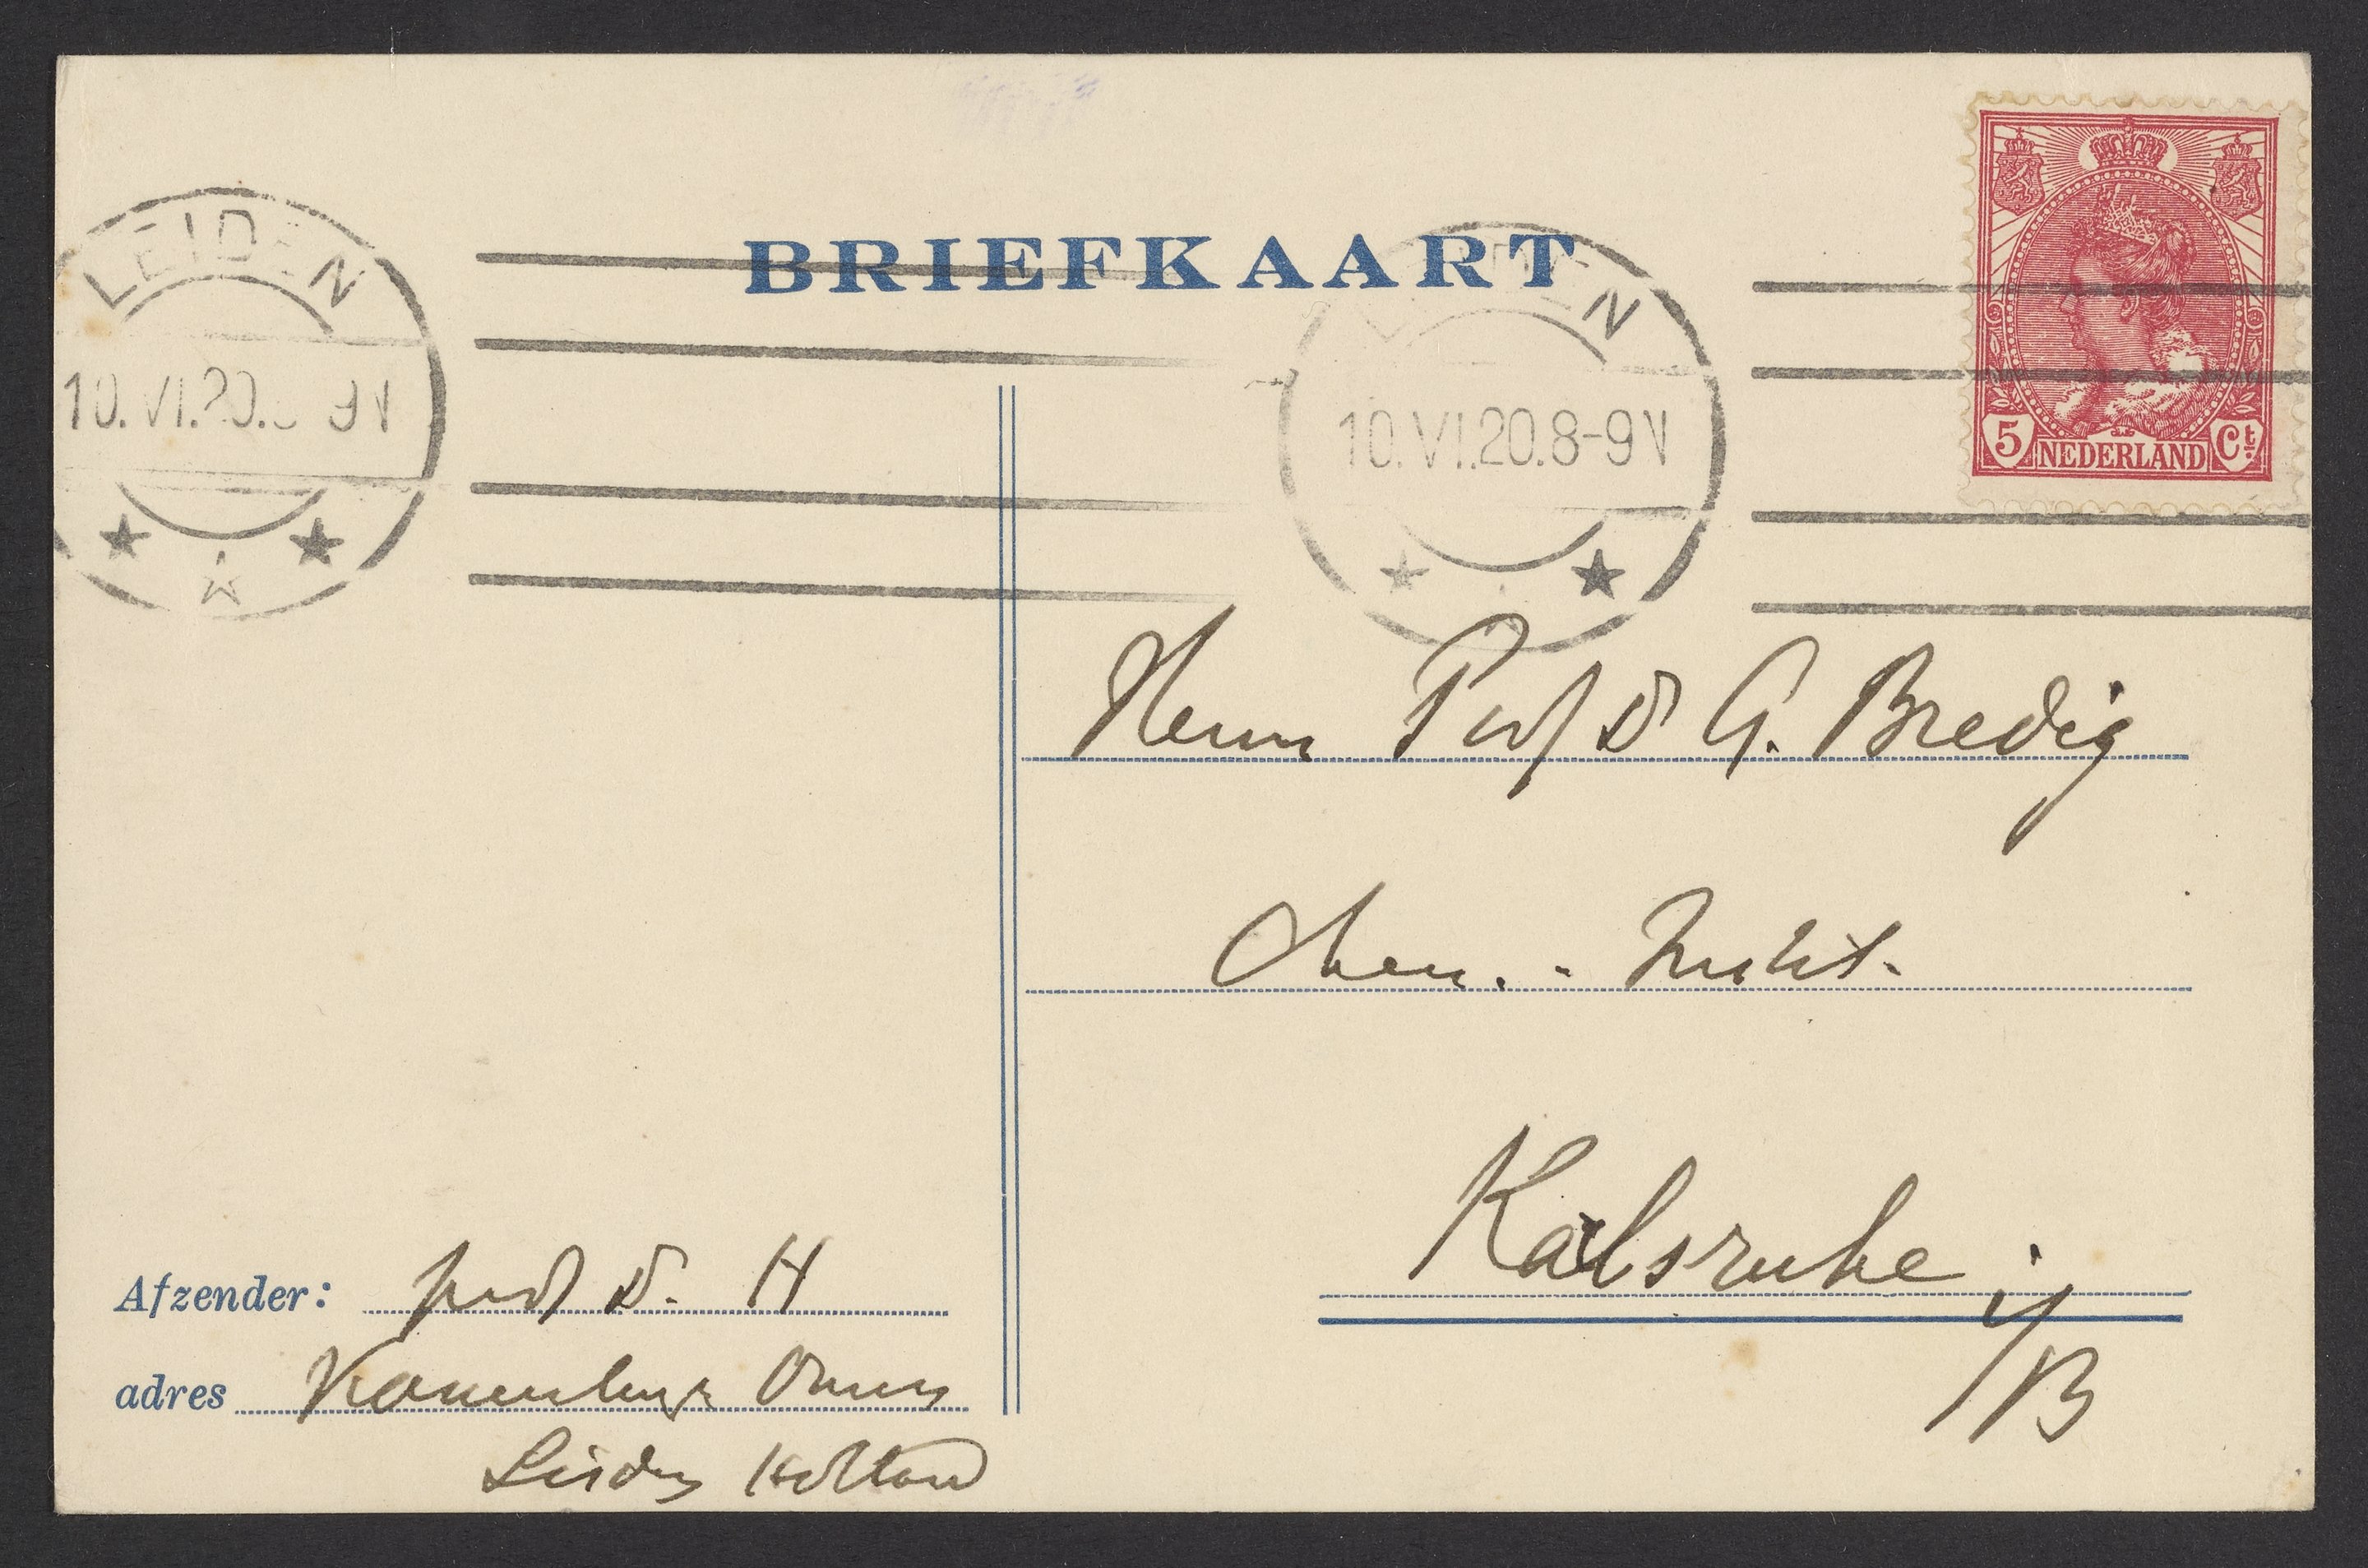 BRIEFKAART
LEIDEN
10.VI.20. 9N
LEIDEN
10.VI.20.8-9N
5 NEDERLAND Ct
Herrn Prof Dr G. Bredig
Chem. - Instit.
Kalsruhe
i/B
Afzender: prof Dr. H
adres Kamerlingh Onnes
Leiden Holland